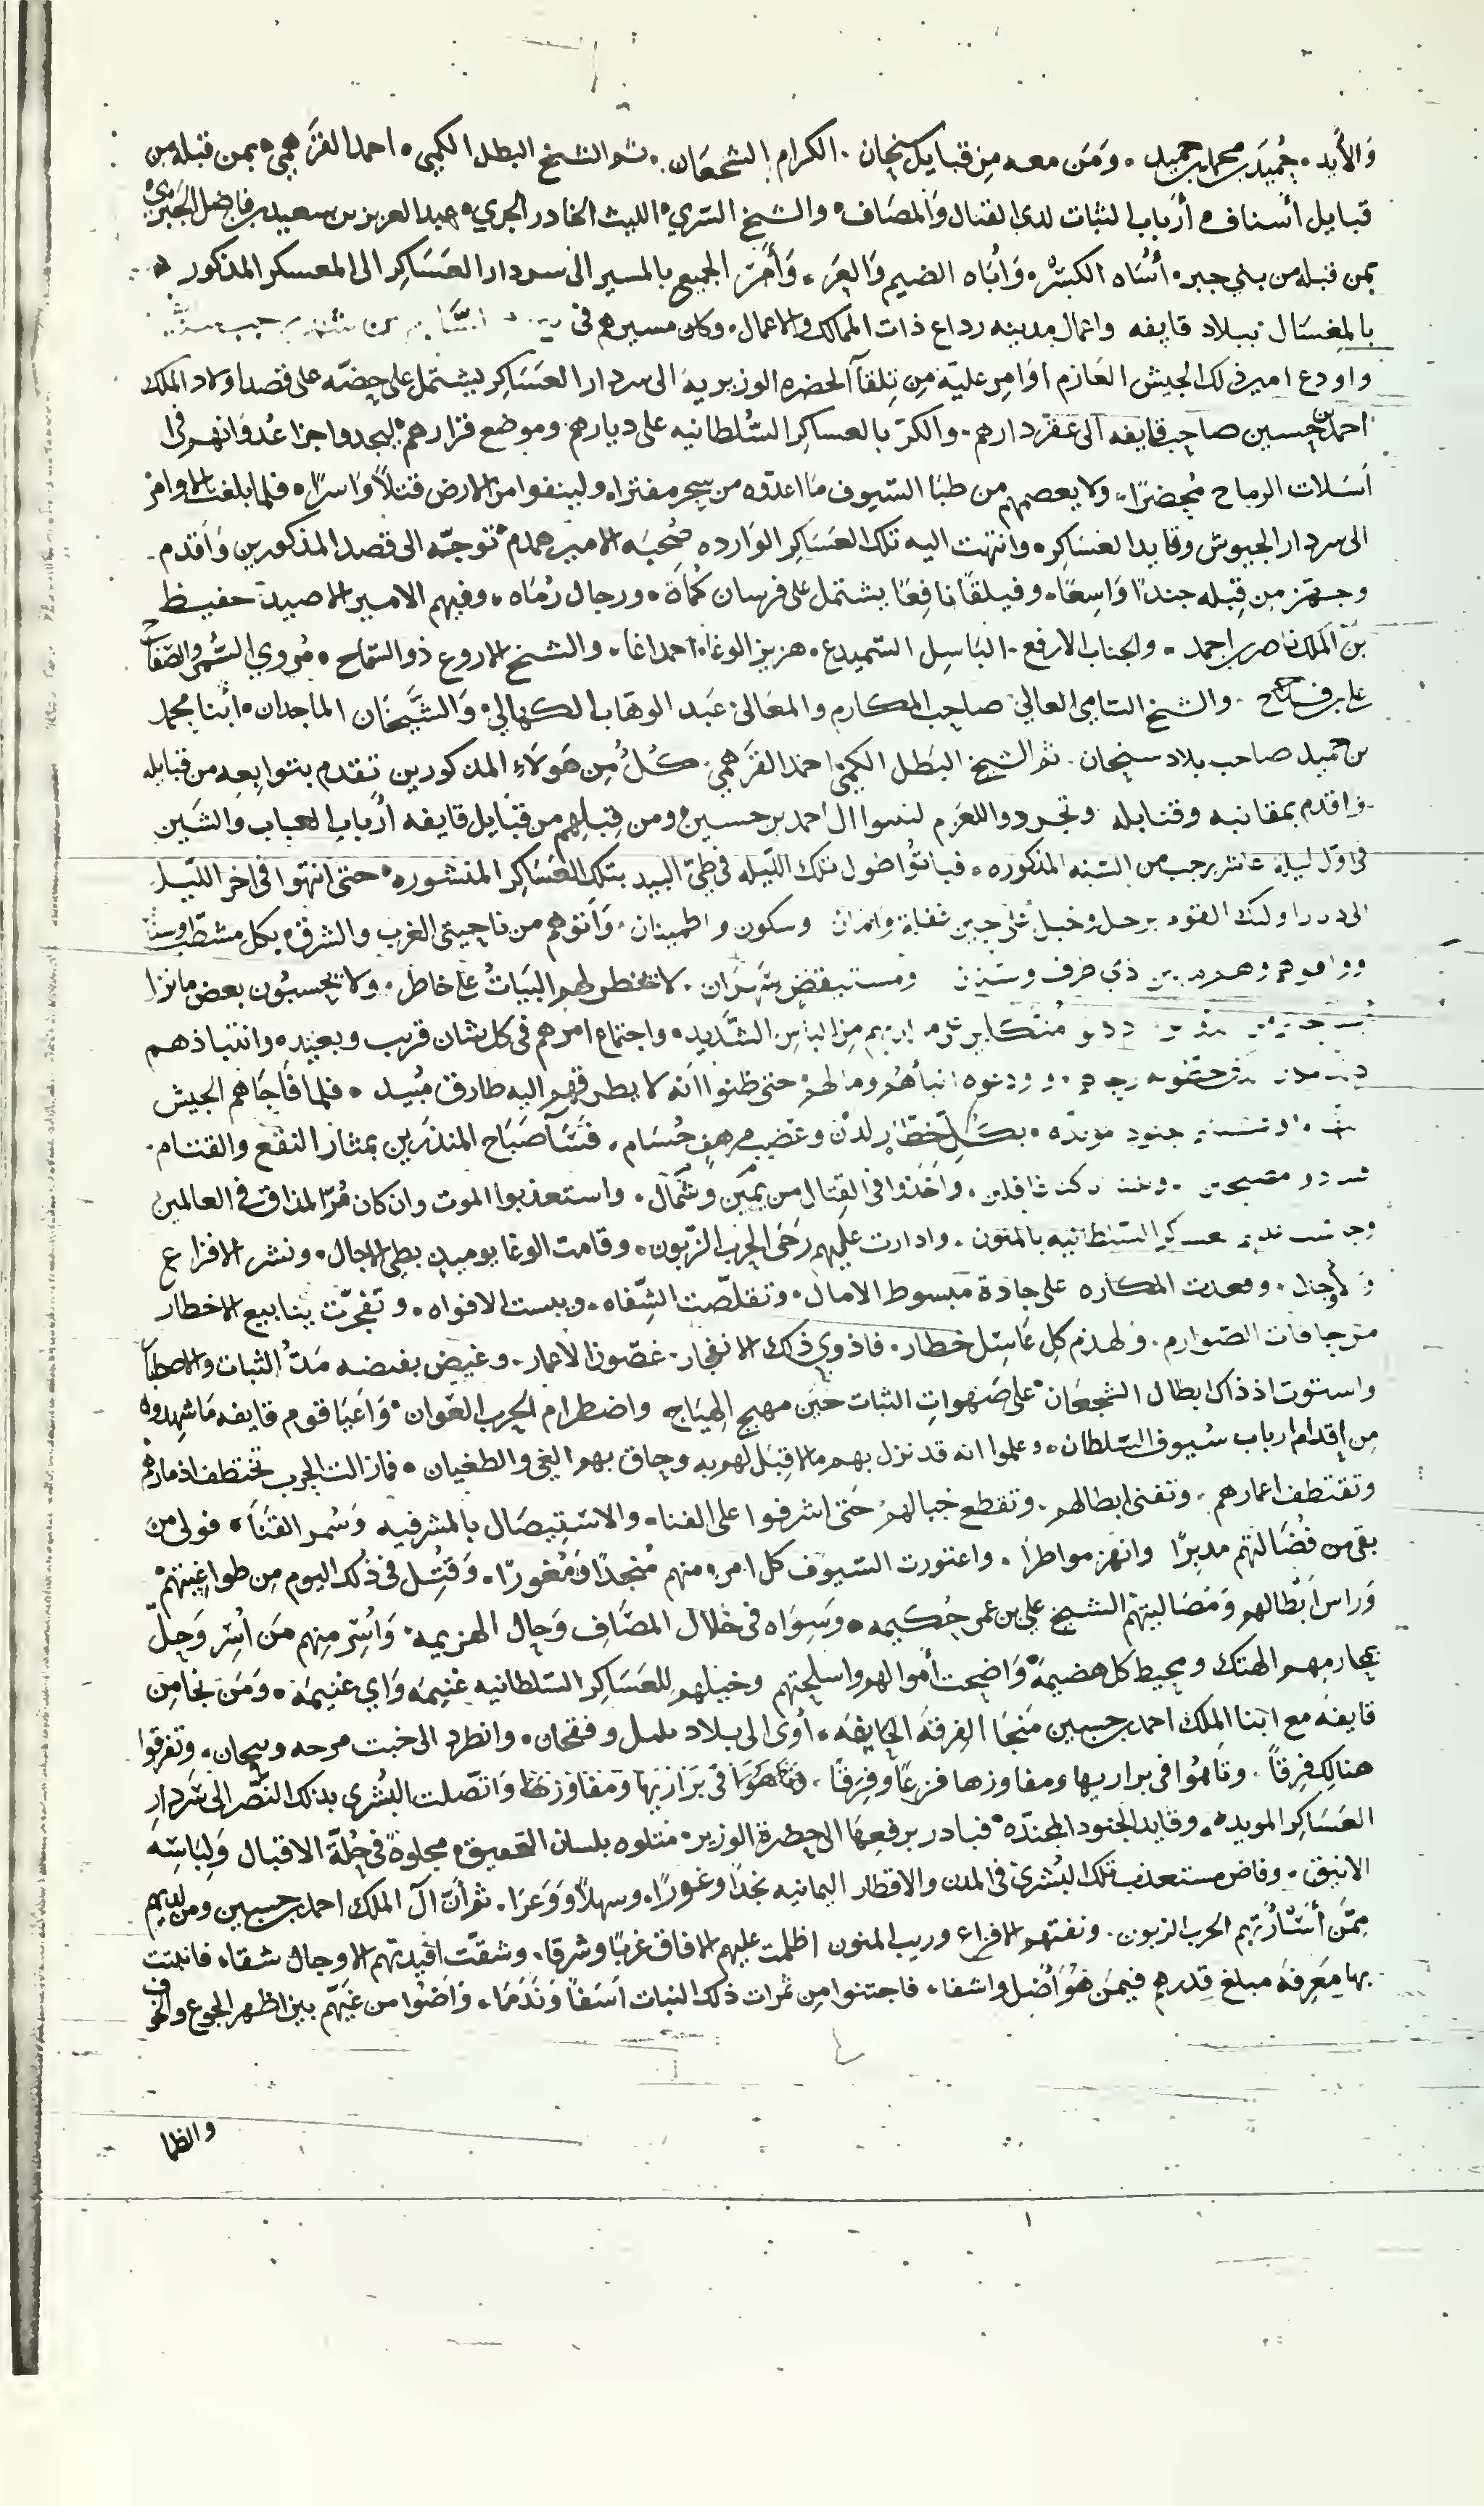 والأيد، حميد بن محمد بن حميد، ومن معه من قبايل سنحان، الكرام الشجعان، ثم الشيخ البطل الكمي، احمد القزهمي، بمن قبله من
قبايل أسناف أرباب الثبات لدى القتال والمصاف، والشيخ السري، الليث الخادر الجري، عبد العزيز بن سعيد بن فاضل الجبري
بمن قبله من بني جبر، أشاه الكسره، وأباه الضيم والعر، وأمر الجميع بالمسير الى سردار العساكر الى المعسكر المذكور،
بالمغسال ببلاد قايفه واعمال مدينه رداع ذات الممالك والاعمال، وكان مسيرهم في
واودع امير ذلك الجيش العازم اوامر عليّه من تلقآ الحضره الوزيريه الى سردار العساكر يشتمل على حضّه على قصد اولاد الملك
احمد بن حسين صاحب قايفه الى عقر دارهم، والكرّ بالعساكر السُّلطانيه على ديارهم وموضع قرارهم، ليجدوا جزا عُدوانهم في
أسَلات الرماح مُحضرًا، ولا يعصمهم من ظبَا السّيوف ما اعدّوه من سحر مفترا، ولينفوا من الارض قتلاً وَاسرًا، فلما بلغت الاوامر
الى سردار الجيوش وقايد العساكر، وانتهت اليه تلك العسَاكر الوارده صُحبَه الامير همدم، توجّه الى قصد المذكورين وَاقدم
وجهّز من قِبله جندًا وَاسِعًا، وفيلقًا نافِعًا يشتمل على فرسان كُماة، ورجال رُماه، وفيهم الامير الاصيد حفيظ
بن الملك ناصر بن احمد، والجناب الارفع، البَاسِل السّميدع، هزبر الوغا، احمد اغا، والشيخ الاروع ذو السّماح، مُروي السُّمر والصّفاح
علي بن فلاح، والشيخ السّامي العالي، صاحب المكارم والمعَالي، عَبد الوهّاب الكهالي، وَالشَّيخَان الماجدان، أبنا محمد
بن حميد صاحب بلاد سنحان، ثم الشيخ البَطل الكميّ، احمد القزهميّ، كُلُّ مِن هَولآءِ المذكورين تقدم بتوابعِه من قبايله
واقدم بمقانبه وقنابله، وتجردوا للعَزم لنسوا ال احمد بن حسين، ومن قِبلهم من قبَايل قايفه أرباب العَاب والشين
في اوّل ليلة عاشر رجب من السّنه المذكوره، فباتُوا طول تلك اللّيله في طيّ البيد بتلك العَسَاكر المنشوره، حتى انتهوا في اخر اللّيل
الى وسكون واطمينان، وَأتوهم من ناحيتي الغرب والشرق، بكل مشطب
لا يخطر لهم البَياتُ على خاطر، ولا يحسبُون بعض ما نزا
من البأس الشّديد، واجتماع امرهم في كل شان قريب وبعيد، وانتباذهم
حتى ظنوا انه لا يطرقهم اليه طارق مُبيد، فلما فاجَاهم الجيش
جنود مويدّه، بكلّ خطّار لدْن وعَضب مرهف حُسَام، فسَآ صَبَاح المنذرين بمثار النقع والقتام،
وَأخَذوا في القتال من يمَين وشَمَال، واستعذبوا الموت وان كان مُرّ المذاق في العالمين
السّلطانيه بالمنون، وادارت عليهم رَحَى الحَرب الزّبون، وقامت الوغا يوميذٍ بطي الاجال، ونشر الافزاع
والأوجال، وقعدت المكاره على جادة مبسوط الامال، وتقلّصت الشّفاه، ويبست الافواه، وتفجّرَت ينابيع الاخطار
من حافات الصّوارم، ولهذم كل عَاسِل خطار، فاذوي ذلك الانفجار، غصُون الأعمار، وغيض بفيضه مَدُّ الثبات والاصطبار
واستوت اذ ذاك ابطال الشجعَان، على صَهواتِ الثبات حَين مهيج الهِيَاج واضطرام الحرب العَوان، وَاعيَا قوم قايفه مَا شهدوه
مِن اقدام ارباب سُيوف السّلطان، وعلموا انه قد نزل بهم ما لا قِبَل لهم به وحاق بهم البغي والطغيان، فما زالت الحرب تختطف اذمارهم
وتقتطف اعمارهم، وتفنى ابطالهم، وتقطع حبالهم، حَتى اشرفوا على الفناء والاسْتيصَال بالمشرفيه وَسُمر القنَا، فولى من
بقي من فُضَالتهم مدبرًا وانهَز مواطرًا، واعتورت السّيوف كل امرء منهم مُنجدًا ومُغورًا، وَقتِل في ذلك اليوم من طواغيتهم
وَراس اَبطالهم وَمَصَاليتهم الشيخ علي بن عمر حُكيمه، وسَواه في خلال المصَاف وحال الهزيمه، وَأُسِر مِنهم مَن أُسِر وَحلّ
بمحارمهم الهتك ومحيط كل هضيمة، وَاضحت أموالهم واسلحتهم وخيلهم للعَسَاكر السّلطانيه غنيمَه وَاي غنيمَه، وَمَن نجَا مِن
قايفَه مع ابنا الملك احمد بن حسين مَنجَا الفرقَه الخايفَه، أوَى الى بلاد ململ وفقحان، وانطرد الى خبت مرحه وبيحان، وتفرقوا
هنالك فِرقًا، وتاهُوا في براريها، ومفاوزها فزعًا وفِرقًا، واتّصلت البُشرى بذلك النّصر الى سردار
العَسَاكر المويده، وقايد الجنود المجنّده، فبادر برفعِهَا الى حضرة الوزير، متلوه بلسان التحقيق، مجلوةً في حُلّة الاقبال وَلِبَاسِه
الانيق، وفاض مستعذب تلك البُشرى في المدن والاقطار اليمانيه نجدًا وغورًا، وسهلاً ووعرًا، ثم أنّ آل الملك احمد بن حسين ومن لديهم
مِمّن أسَارتهم الحرب الزبون، ونفتهم الافزاع وريب المنون اظلمت عليهم الافاق غربًا وشرقا، وشقّت افيدتهم الاوجال شقا، فانثنت
بها مَعرفة مبلغ قدرهم فيمَن هُوَ أضل واشقا، فاجتنوا من ثمرات ذلك النبات اَسَفًا وَنَدَمًا، وَاضوا من غيّهم بين اظهر الجوع والخوف
والظما